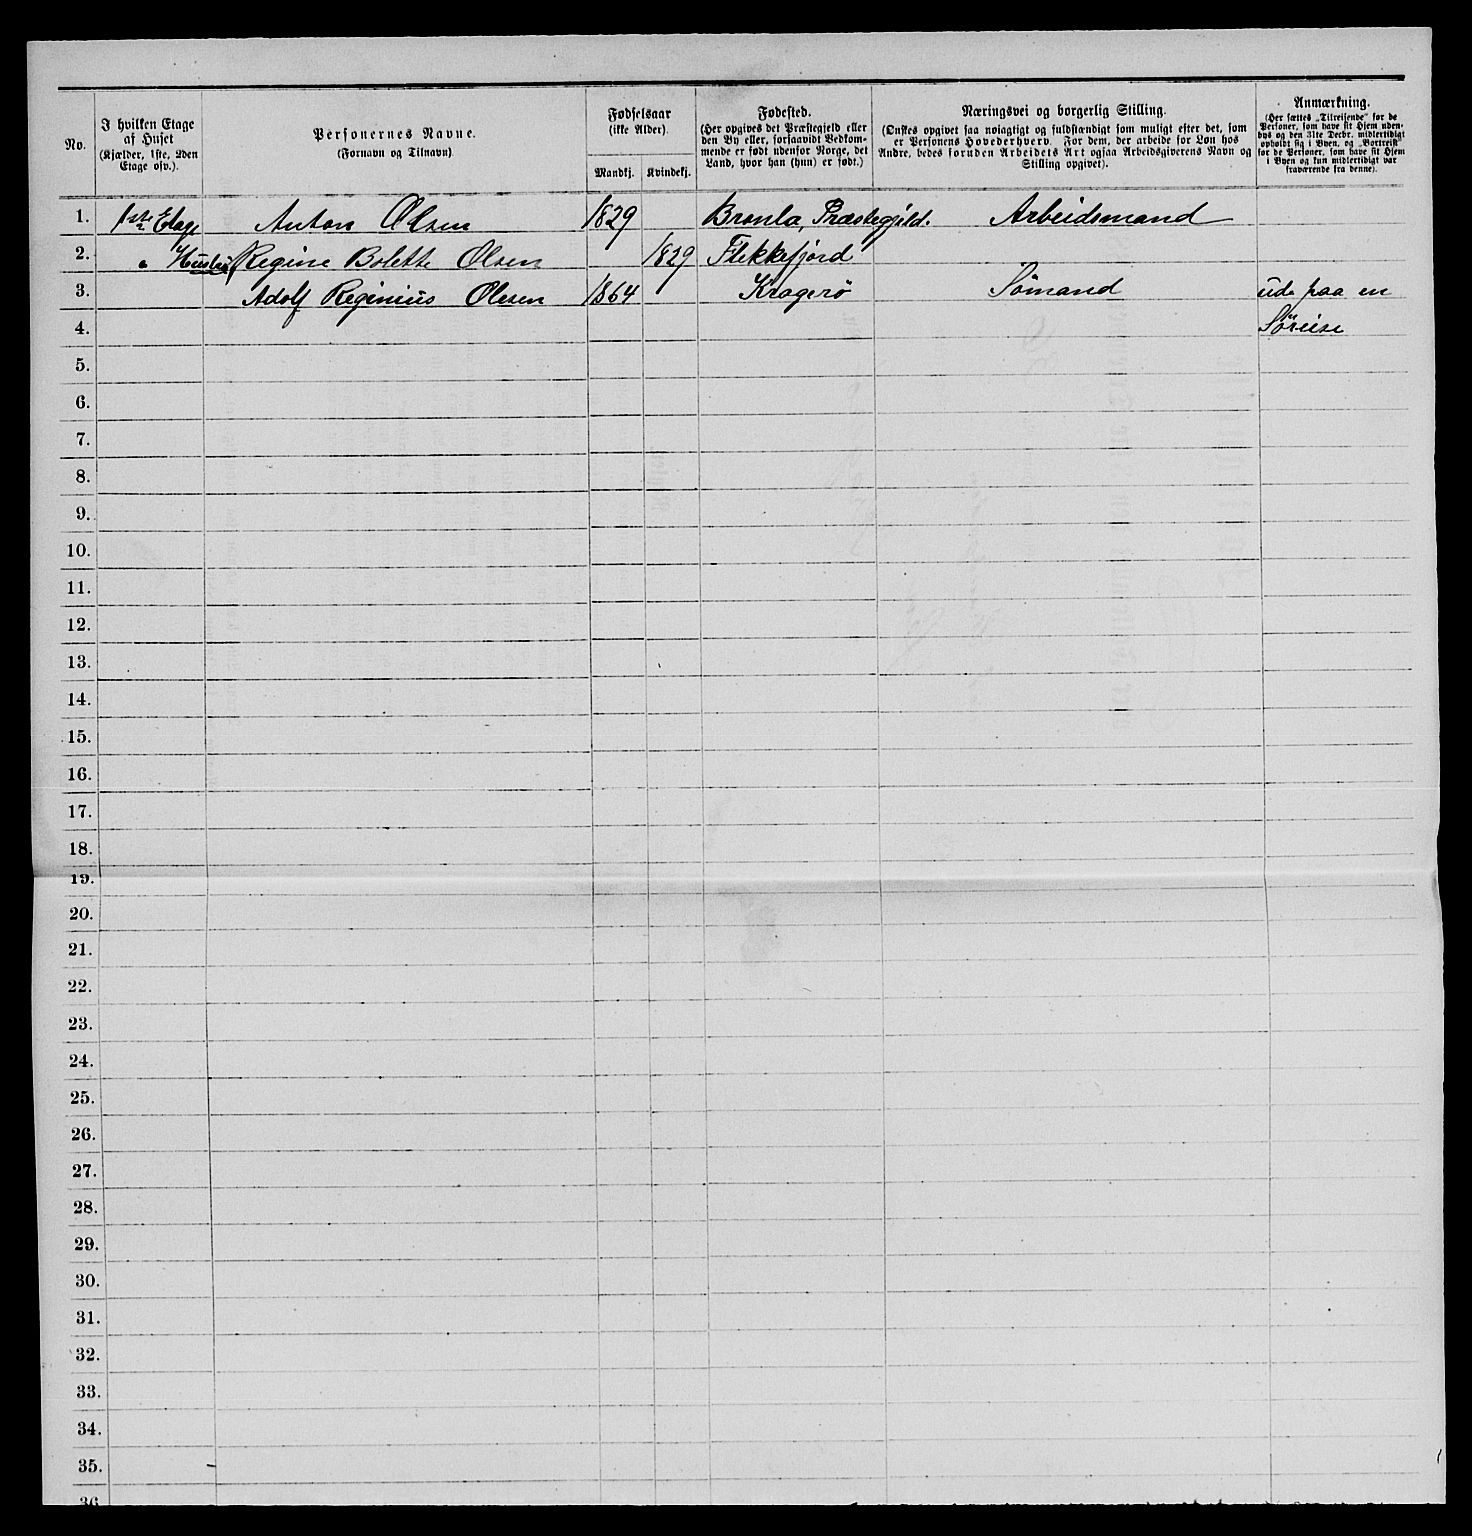 No.
I hvilken Etage
af Huset
(Kjælder, 1ste, 2den
Etage osv.).
Personernes Navne.
(Fornavn og Tilnavn)
Fødselsaar
(ikke Alder).
Mandkj. Kvindekj.
Fødested.
(Her opgives det Præstegjeld eller
den By eller, forsaavidt Vedkom-
mende er født udenfor Norge, det
Land, hvor han (hun) er født.)
Næringsvei og borgerlig Stilling.
(Ønskes opgivet saa nøiagtigt og fuldstændigt som muligt efter det, som
er Personens Hovederhverv. For dem, der arbeide for Løn hos
Andre, bedes foruden Arbeidets Art ogsaa Arbeidsgiverens Navn og
Stilling opgivet).
Anmærkning.
(Her sættes „Tilreisende“ for de
Personer, som have sit Hjem uden-
bys og den 31te Decbr. midlertidigt
opholdt sig i Byen, og „Bortreist“
for de Personer, som have sit Hjem
i Byen og kun midlertidigt var
fraværende fra denne).
1. 1ste Etage Anton Olsen 1829 Bronla, Præstegjeld. Arbeidsmand
2. " Regine Bolette Olsen 1829 Flekkefjord
3. Adolf Reginius Olesen 1864 Kragerø Sømand ude paa en
4. Søreise
5.
6.
7.
8.
9.
10.
11.
12.
13.
14.
15.
16.
17.
18.
19.
20.
21.
22.
23.
24.
25.
26.
27.
28.
29.
30.
31.
32.
33.
34.
35.
36